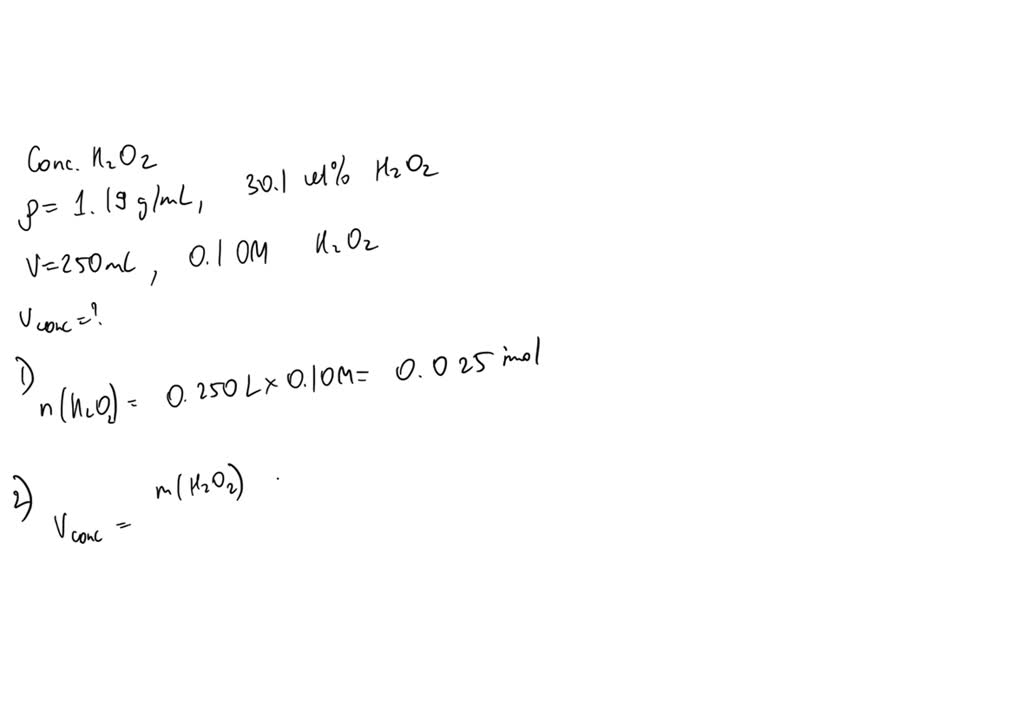 Conc. H₂O₂
ρ = 1.19 g/mL, 30.1 wt% H₂O₂
V=250mL, 0.10M H₂O₂
Vconc =?
1) n(H₂O₂) = 0.250L × 0.10M = 0.025 mol
2) Vconc = m(H₂O₂) ·